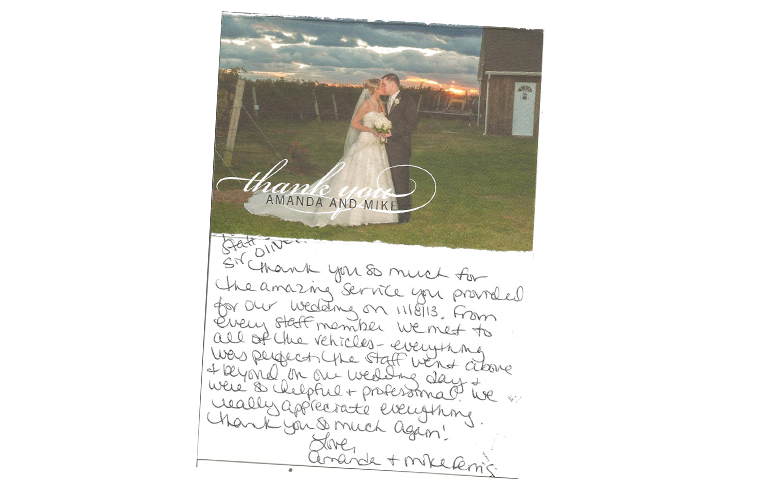 thank you
AMANDA AND MIKE
Staff
Sir Oliver
Thank you so much for
the amazing service you provided
for our wedding on 11/8/13. From
every staff member we met to
all of the vehicles - everything
was perfect! The staff went above
+ beyond on our wedding day +
were so helpful + professional! We
really appreciate everything.
Thank you so much again!
Love,
Amanda + Mike